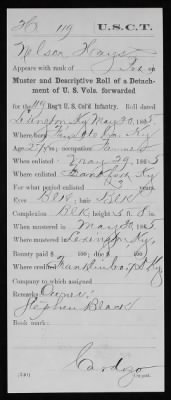 H 119 U.S.C.T.
Nelson Hays
Appears with rank of
Muster and Descriptive Roll of a Detach-
ment of U. S. Vols. forwarded
for the 119 Reg't U. S. Col'd Infantry. Roll dated
Lexington Ky May 30, 1865
Where born Ky
Age y'rs; occupation Farmer
When enlisted May 29, 1865
Where enlisted Frankfort Ky
For what period enlisted years.
Eyes Blk; hair Blk
Complexion Blk; height 5 ft. 8 in.
When mustered in May 30, 1865
Where mustered in Lexington, Ky.
Bounty paid $ 100; due $ 100
Where credited Franklin Co. Ky
Company to which assigned
Remarks: Owner:
Stephen Black
Book mark:
Copyist.